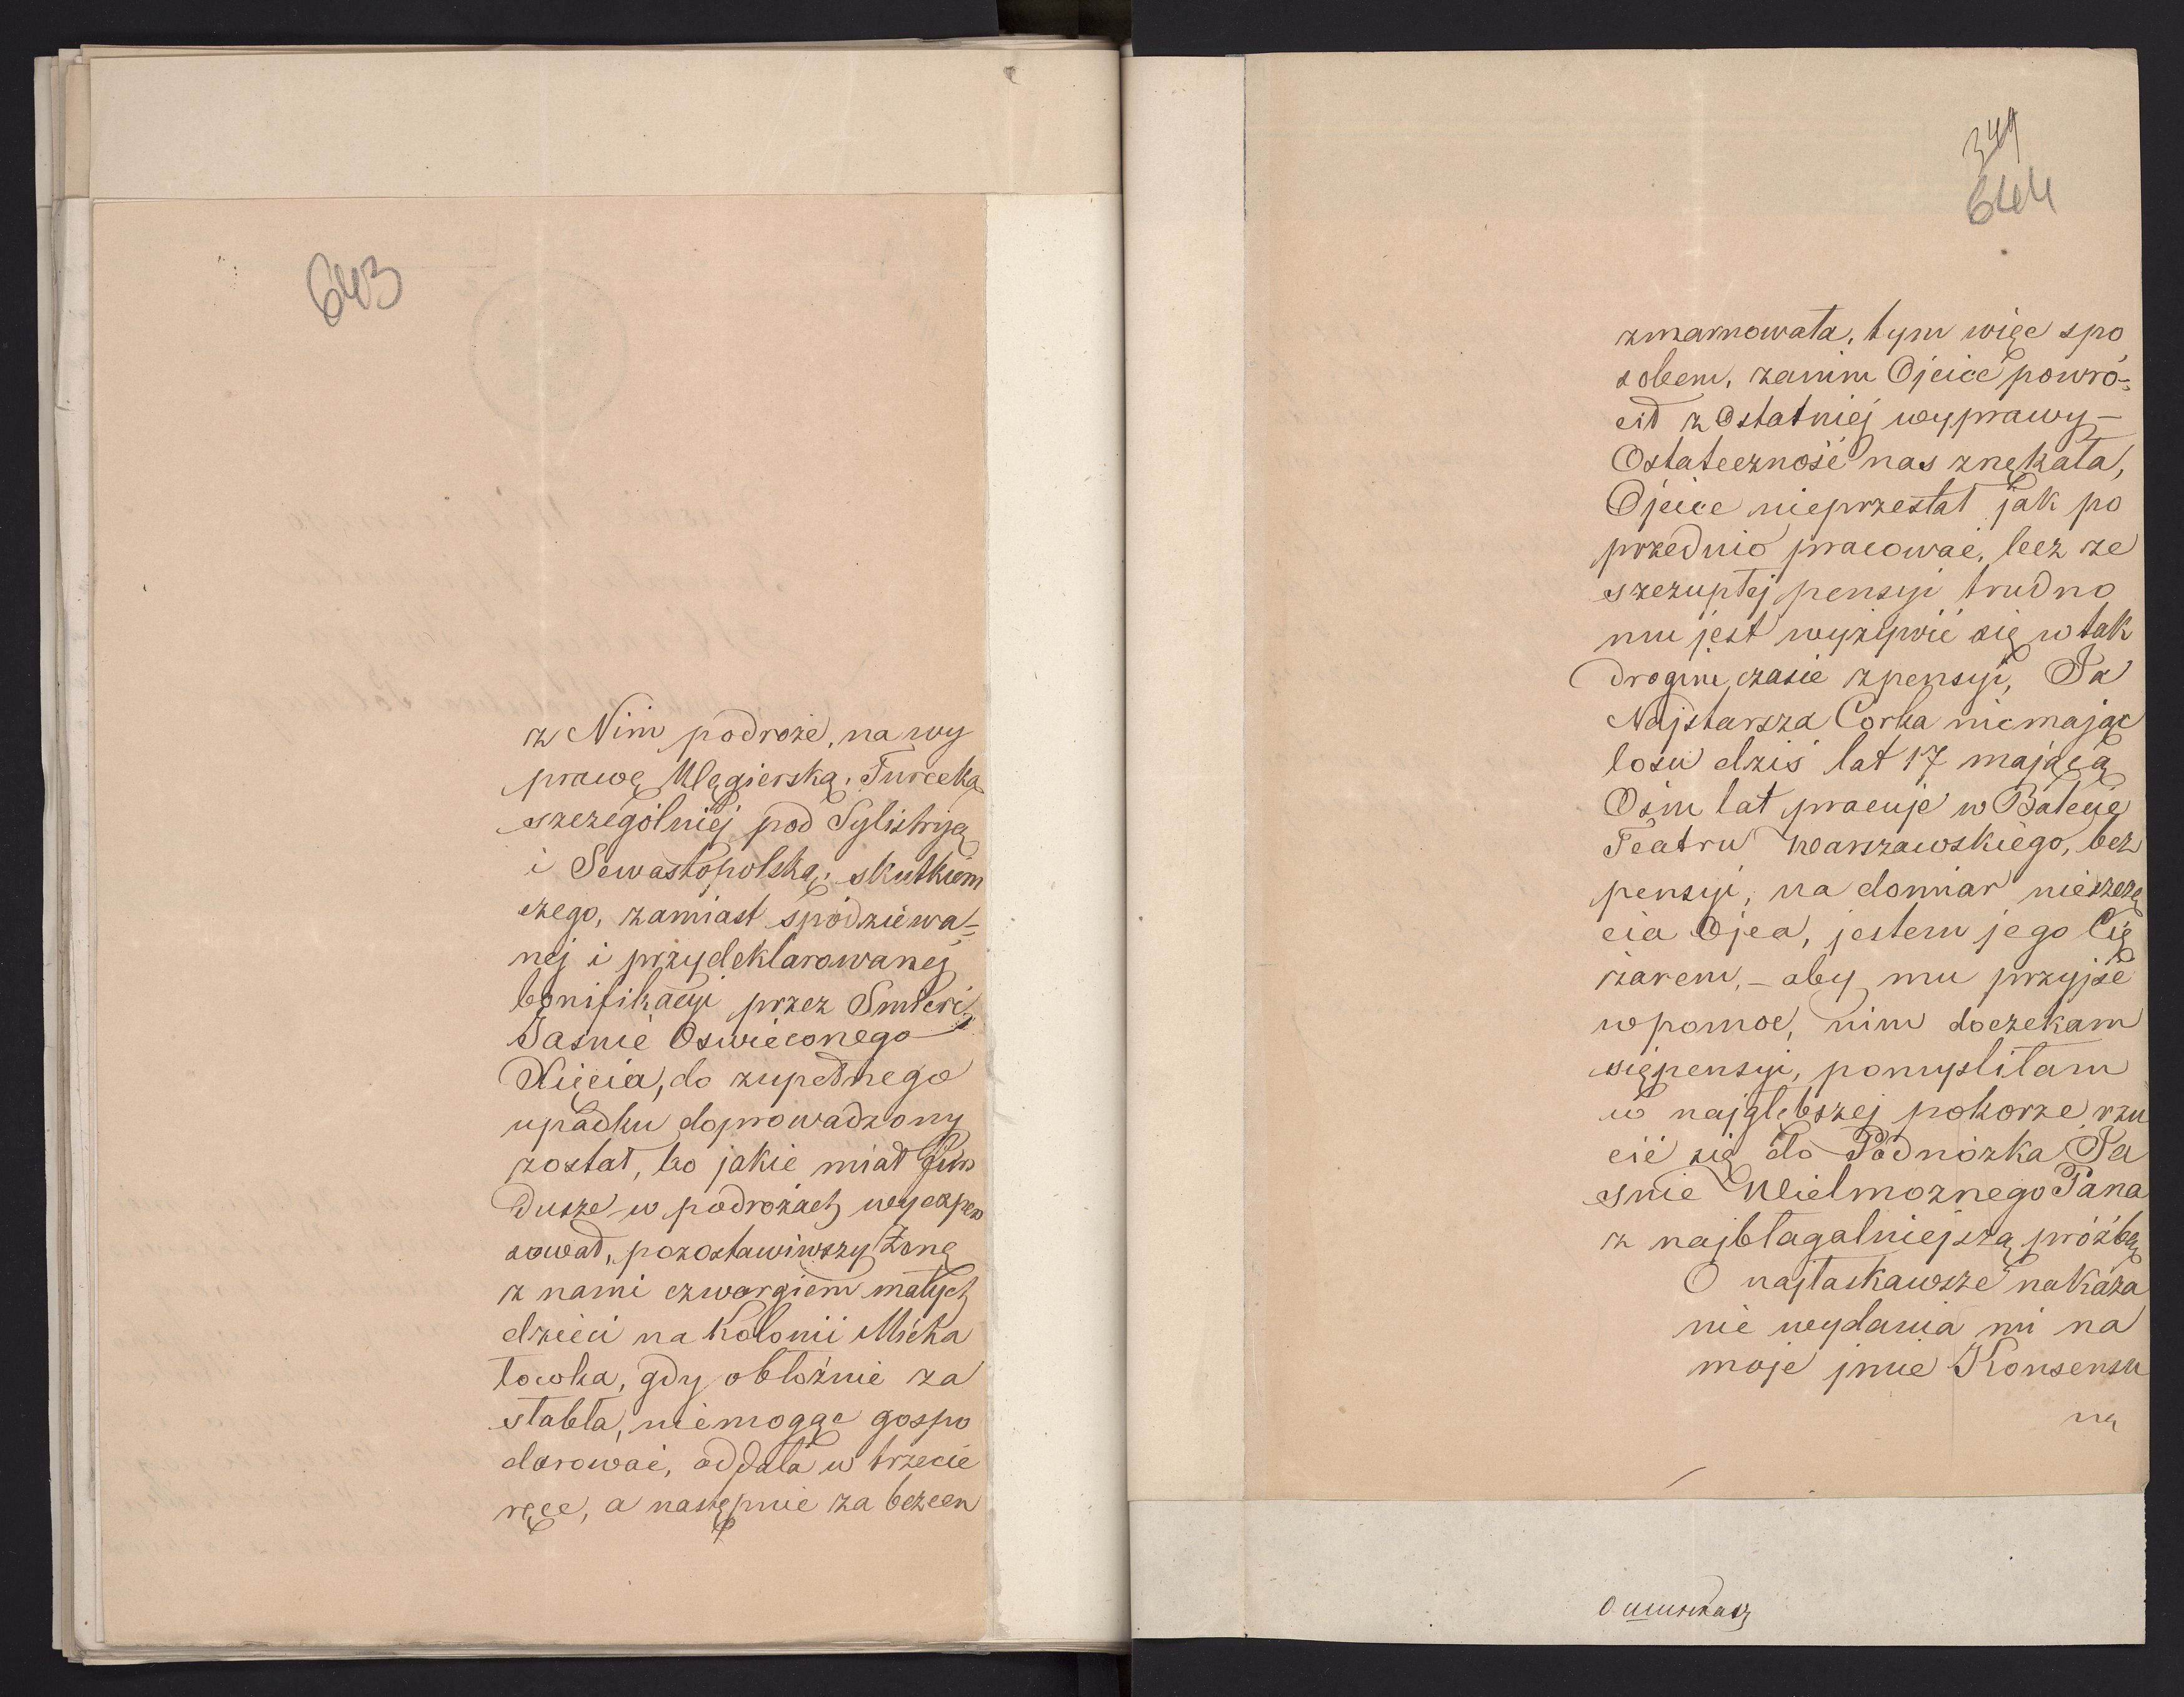 643
z Nim podroże, na wy
prawę Węgierską, Turecką
szczególniej pod Sylistryą
i Sewastopolską, skutkiem
czego, zamiast spodziewa=
nej i przydeklarowanej
bonifikacyi przez Smierć
Jasnie Oswieconego
Xięcia, do zupełnego
upadku doprowadzony
został, bo jakie miał fun
dusze w podrożach wyexpen
sował, pozostawiwszy Żonę
z nami czworgiem małych
dzieci na Kolonii Micha
łowka, gdy obłożnie za
słabła, niemogąc gospo
darować, oddała w trzecie
ręce, a następnie za bezcen
349
644
zmarnowała, tym więc spo
sobem, zanim Ojciec powró=
cił z Ostatniej wyprawy –
Ostateczność nas znękała,
Ojciec nieprzestał jak po
przednio pracować, lecz ze
szczupłej pensyi trudno
mu jest wyżywić się w tak
drogim czasie z pensyi, Ja
Najstarsza Corka niemając
losu dziś lat 17 mająca
Ośm lat pracuje w Balecie
Teatru Warszawskiego, bez
pensyi, na domiar nieszczę
cia Ojca, jestem jego Cię
żarem, – aby mu przyjść
w pomoc, nim doczekam
się pensyi, pomyśliłam
w najglębszej pokorze rzu
cić się do Podnóżka Ja
snie Wielmożnego Pana
z najbłagalniejszą próźbą
O najłaskawsze nakaza
nie wydania mi na
moje jmie Konsensu
na